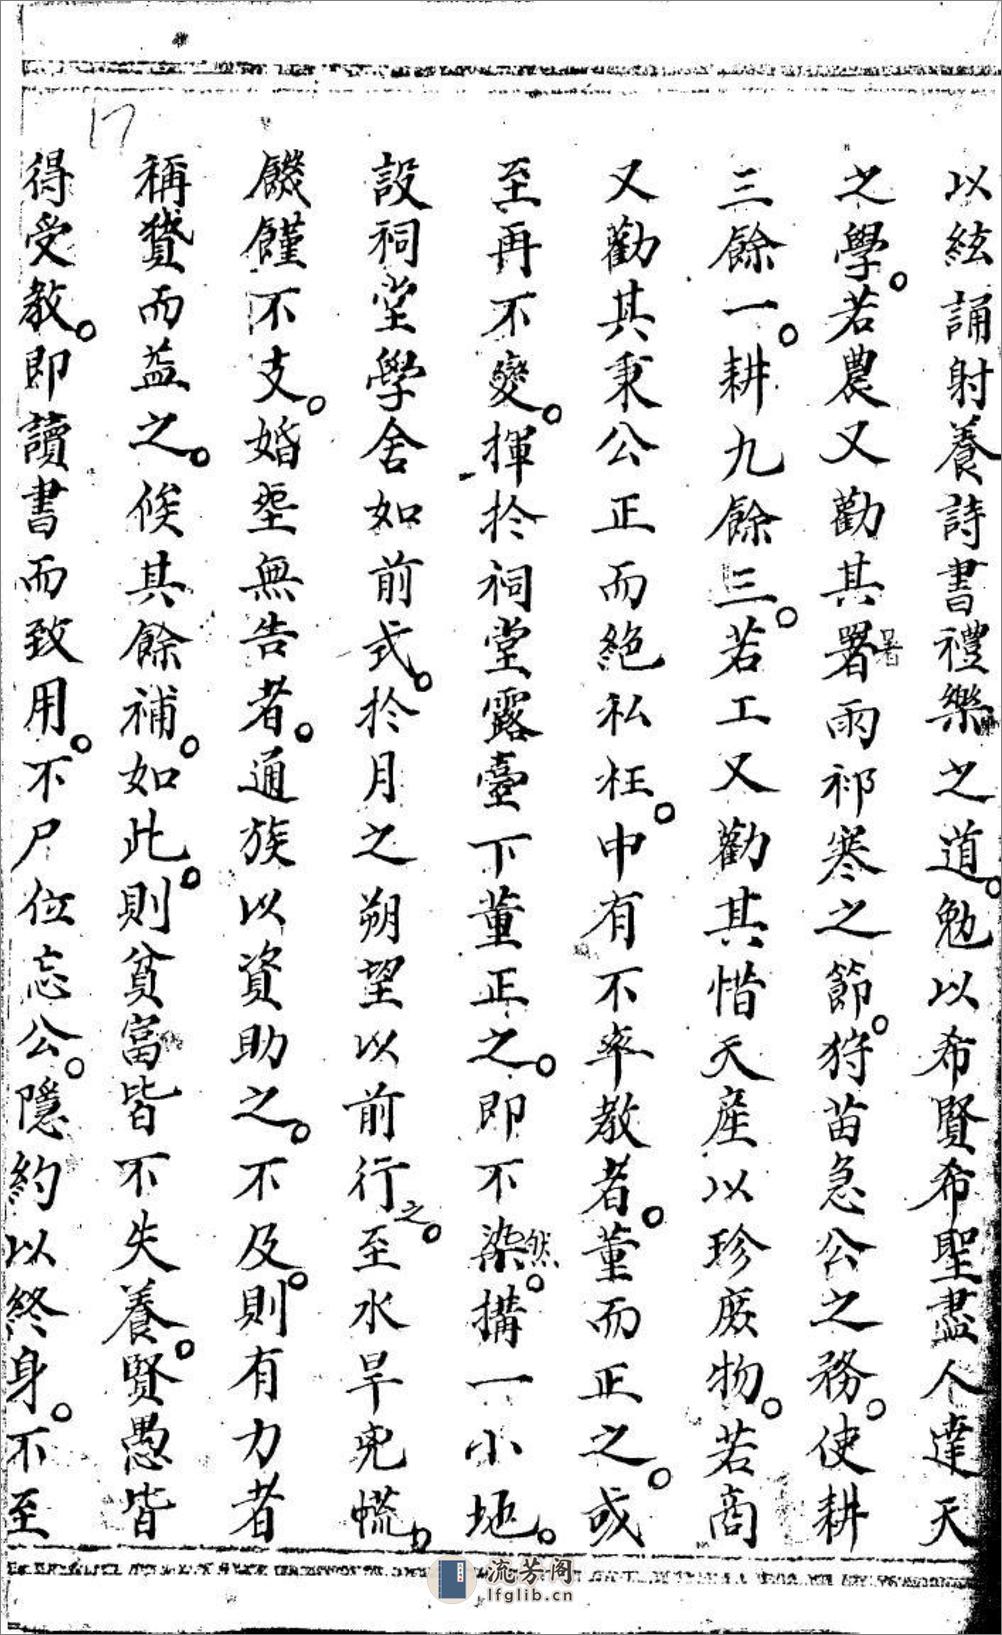 17
以絃誦射養詩書禮樂之道。勉以希賢希聖盡人達天
之學。若農又勸其署暑雨祁寒之節。狩苗急公之務。使耕
三餘一。耕九餘三。若工又勸其惜天產以珍厥物。若商
又勸其秉公正而絕私枉。中有不率教者。董而正之。或
至再不變。揮於祠堂露臺下董正之。即不染然。搆一小地。
設祠堂學舍如前式。於月之朔望以前行之。至水旱兇慌。
饑饉不支。婚塟無告者。通族以資助之。不及。則有力者
稱貸而益之。俟其餘補。如此。則貧富皆不失養。賢愚皆
得受教。即讀書而致用。不尸位忘公。隱約以終身。不至
流芳阁
lfglib.cn